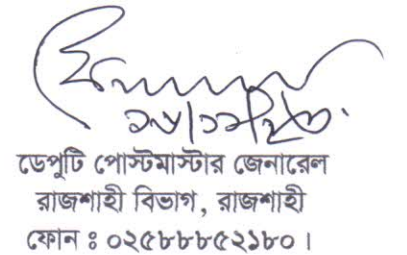 ডেপুটি পোস্টমাস্টার জেনারেল
রাজশাহী বিভাগ, রাজশাহী
ফোন ঃ ০২৫৮৮৮৫২১৮০।